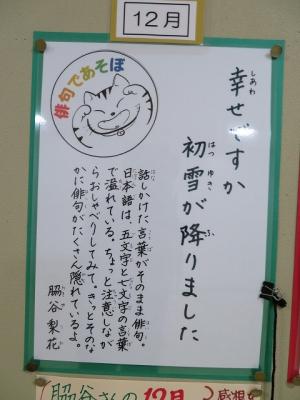 12月
俳句であそぼ
幸せですか
初雪が降りました
話しかけた言葉がそのまま俳句。
日本語は、五文字と七文字の言葉
で溢れている。ちょっと注意しなが
らおしゃべりしてみて。きっとそのな
かに俳句がたくさん隠れているよ。
脇谷梨花
脇谷さんの12月
感想を